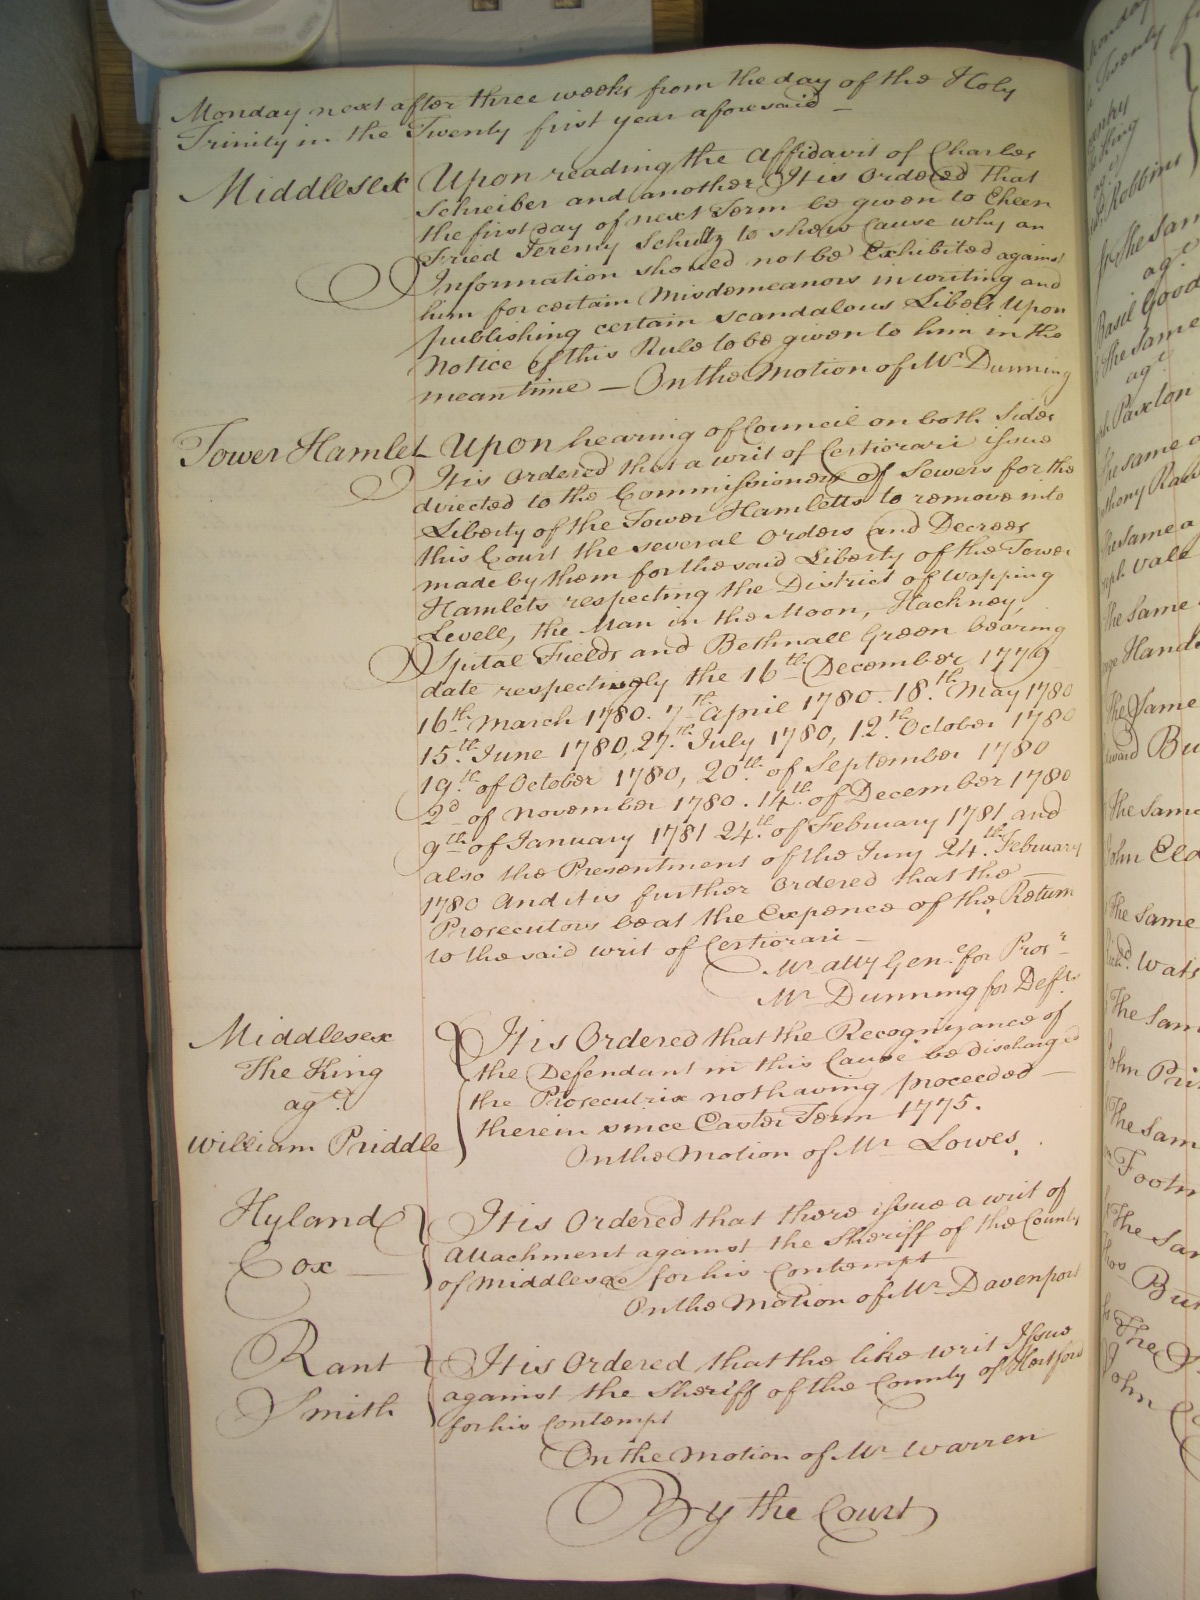 Monday next after three weeks from the day of the Holy
Trinity in the Twenty first year aforesaid —
Middlesex Upon reading the Affidavit of Charles
Schreiber and another It is Ordered that
the first day of next Term be given to Cheen
Fried Jeremy Schultz to shew Cause why an
Information should not be Exhibited against
him for certain Misdemeanors in writing and
publishing certain scandalous Libels Upon
Notice of this Rule to be given to him in the
mean time — On the Motion of Mr Dunning
Tower Hamlet Upon hearing of Council on both Sides
It is Ordered that a writ of Certiorari issue
directed to the Commissioners of Sewers for the
Liberty of the Tower Hamletts to remove into
this Court the several Orders and Decrees
made by them for the said Liberty of the Tower
Hamlets respecting the District of Wapping
Levell, the Man in the Moon, Hackney,
Spital Fields and Bethnall Green bearing
date respectingly the 16th December 1779
16th March 1780. 7th April 1780. 18th May 1780
15th June 1780, 27th July 1780, 12th October 1780
19th of October 1780, 20th of September 1780
2d of November 1780. 14th of December 1780
9th of January 1781 24th of February 1781 and
also the Presentment of the Jury 24th February
1780 And it is further Ordered that the
Prosecutors be at the Expence of the Return
to the said writ of Certiorari —
Mr Atty Gen.e for Prosr
Mr Dunning for Defts
Middlesex
The King
agt
William Priddle
It is Ordered that the Recognizance of
the Defendant in this Cause be discharged
the Prosecutrix not having proceeded —
therein since Easter Term 1775.
On the Motion of Mr Lowes.
Hyland
Cox
It is Ordered that there issue a writ of
Attachment against the Sheriff of the County
of Middlesex for his Contempt
On the Motion of Mr Davenport
Rant
Smith
It is Ordered that the like writ Issue
against the Sheriff of the County of Hertford
for his Contempt
On the Motion of Mr Warren
By the Court